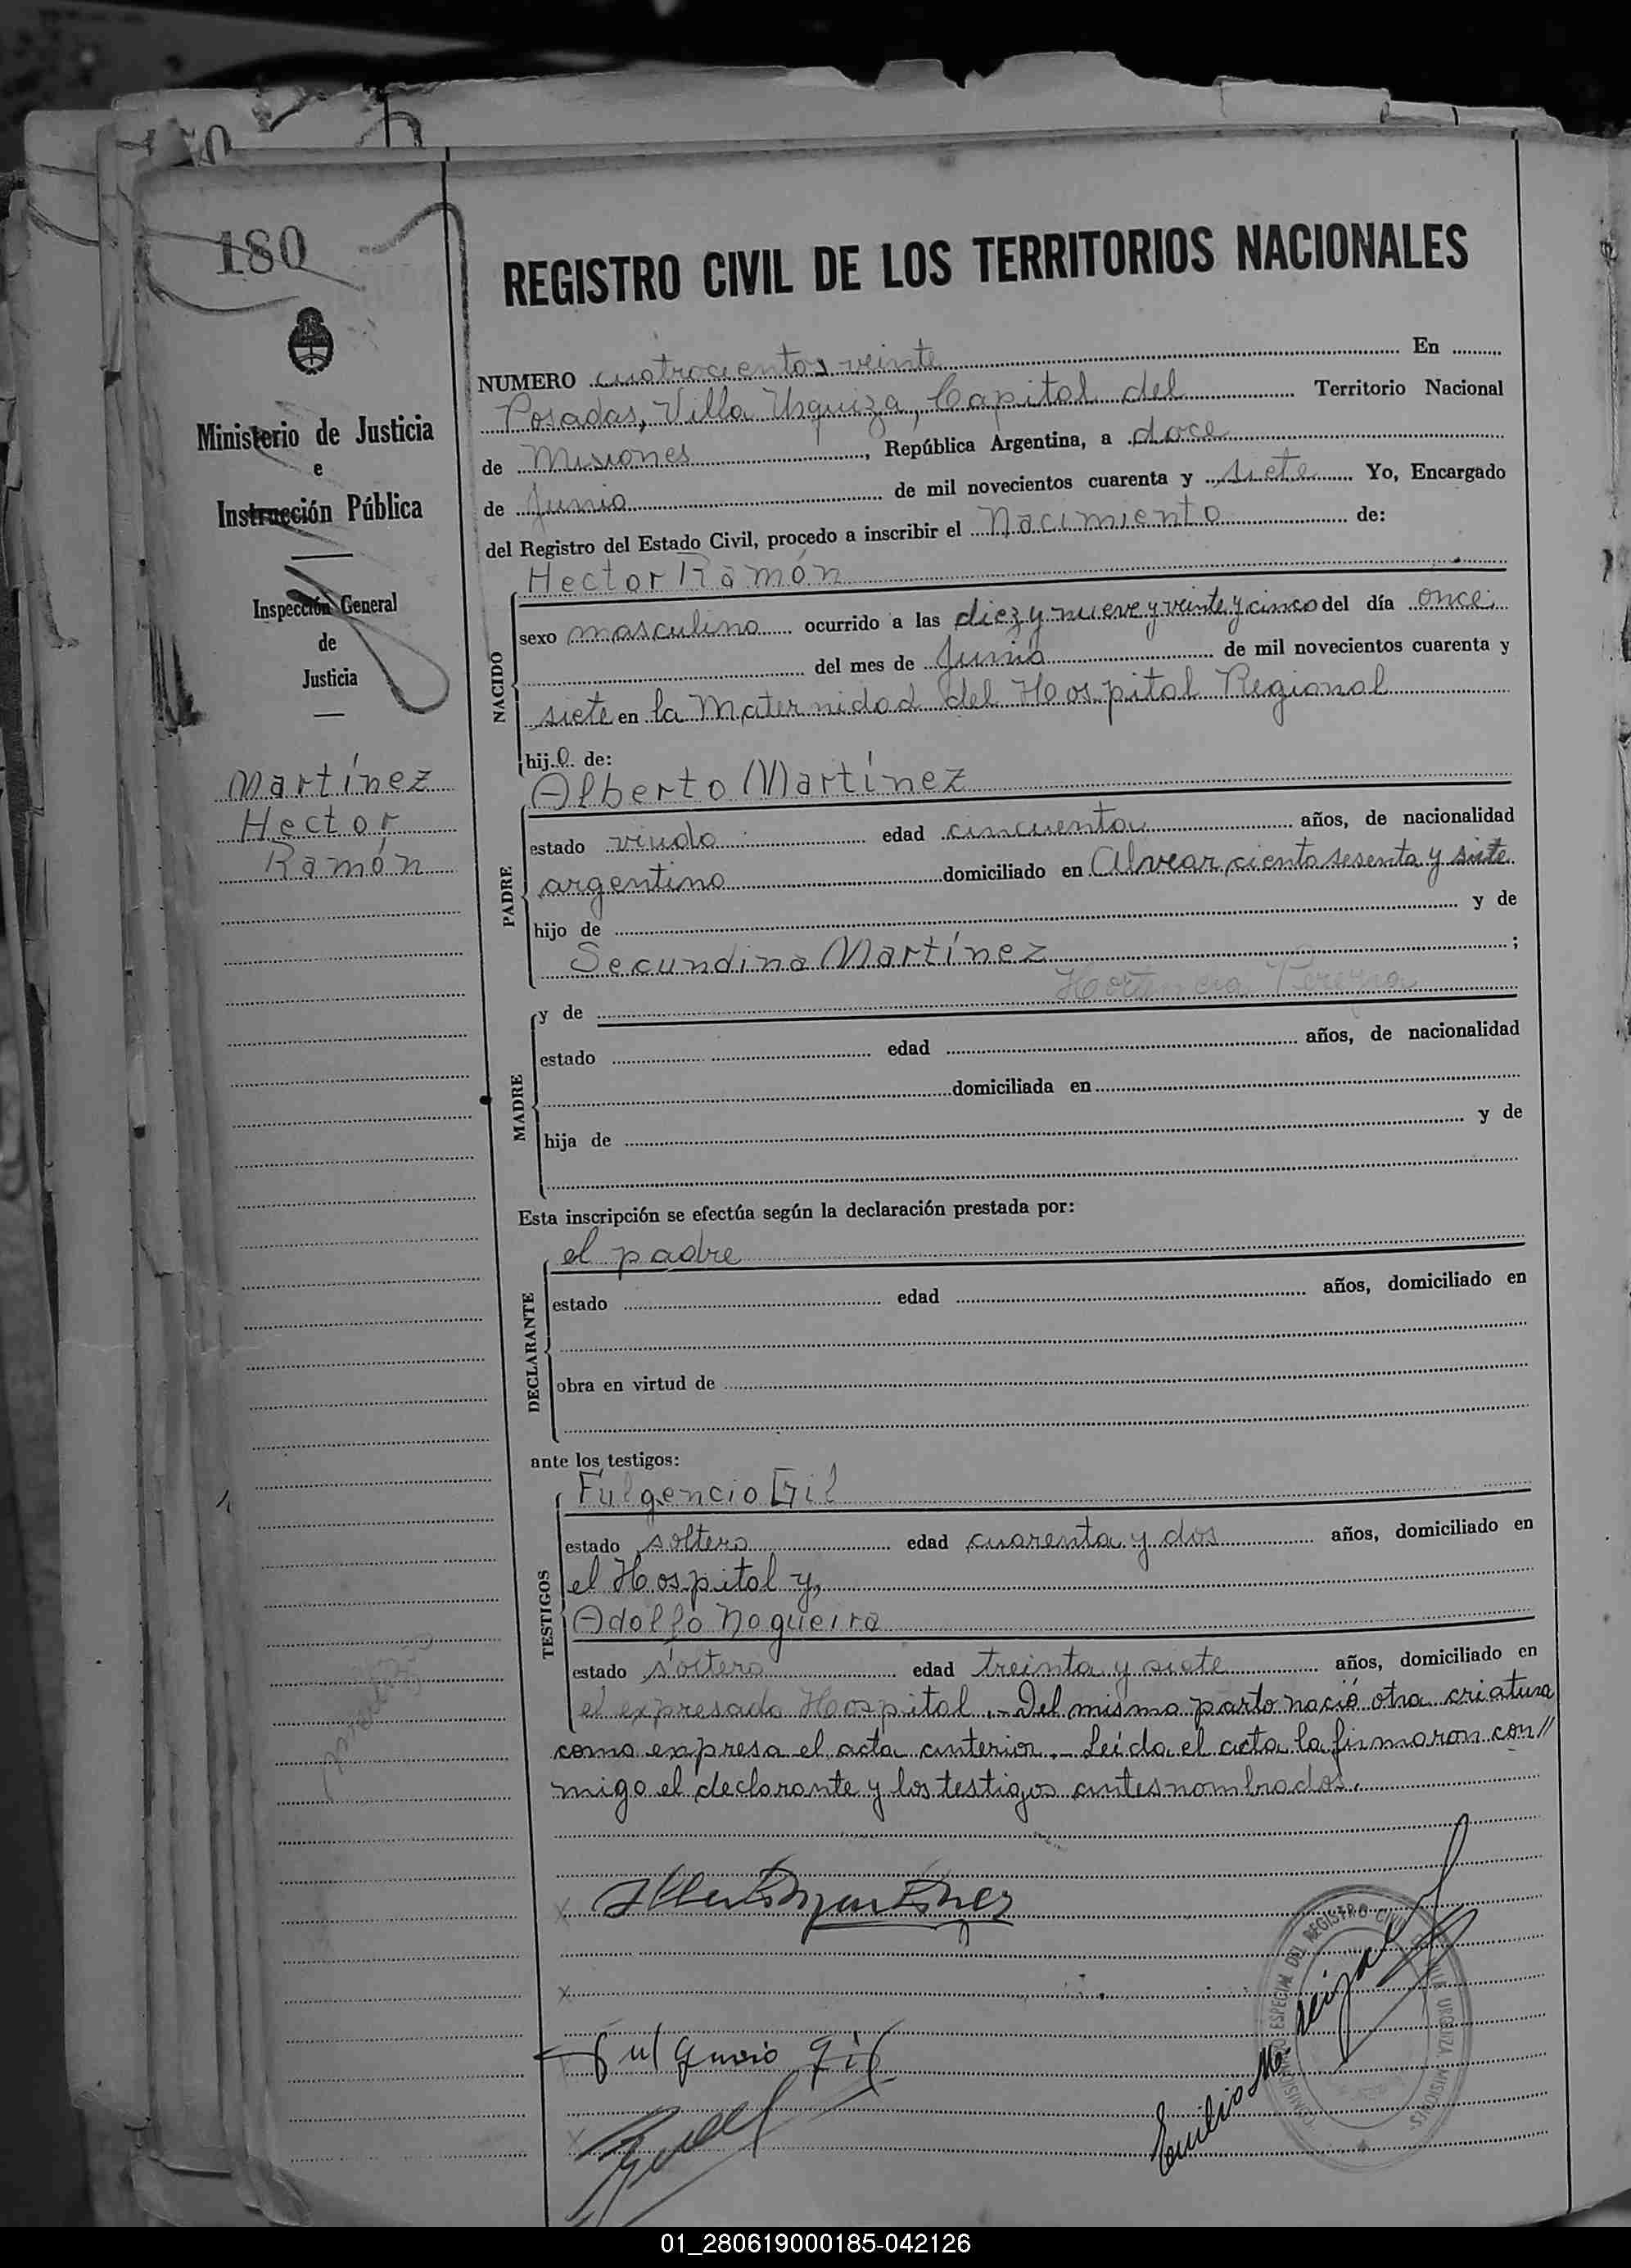 180
REGISTRO CIVIL DE LOS TERRITORIOS NACIONALES
Ministerio de Justicia
e
Instrucción Pública
Inspección General
de
Justicia
Martínez
Hector
Ramón
NUMERO cuatrocientos veinte En
Posadas, Villa Urquiza, Capital del Territorio Nacional
de Misiones, República Argentina, a doce
de Junio de mil novecientos cuarenta y siete Yo, Encargado
del Registro del Estado Civil, procedo a inscribir el Nacimiento de:
Hector Ramón
NACIDO
sexo masculino ocurrido a las diez y nueve y veinte y cinco del día once
del mes de Junio de mil novecientos cuarenta y
siete en la Maternidad del Hospital Regional
hijo de:
Alberto Martínez
PADRE
estado viudo edad cincuenta años, de nacionalidad
argentino domiciliado en Alvear, ciento sesenta y siete
hijo de y de
Secundina Martínez ;
Hortencia Pereyra
y de
MADRE
estado edad años, de nacionalidad
domiciliada en
hija de y de
Esta inscripción se efectúa según la declaración prestada por:
el padre
DECLARANTE
estado edad años, domiciliado en
obra en virtud de
ante los testigos:
Fulgencio Gil
TESTIGOS
estado soltero edad cuarenta y dos años, domiciliado en
el Hospital y,
Adolfo Nogueira
estado soltero edad treinta y siete años, domiciliado en
el expresado Hospital.- Del mismo parto nació otra criatura
como expresa el acta anterior.- Leída el acta la firmaron con//
migo el declarante y los testigos antes nombrados.
Alberto Martínez
Fulgencio Gil
Emilio M.
ESPECIAL DEL REGISTRO CIVIL URQUIZA MISIONES
01_280619000185-042126